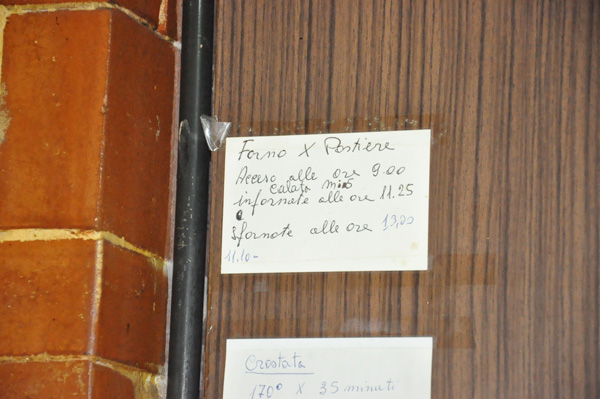 Forno X Pastiere
Acceso alle ore 9.00
calato
infornate alle ore 11.25
e
sfornate alle ore 13,00
11.10-
Crostata
170° X 35 minuti